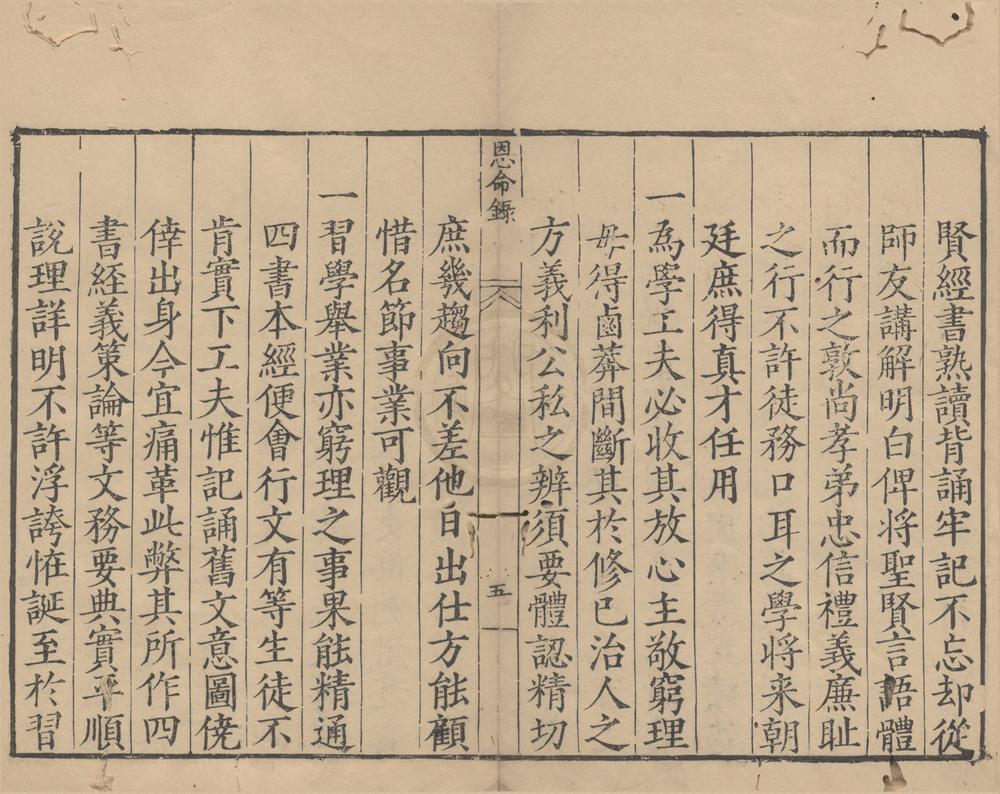 賢經書熟讀背誦牢記不忘却從
師友講解明白俾將聖賢言語體
而行之敦尚孝弟忠信禮義廉耻
之行不許徒務口耳之學將来朝
廷庶得真才任用
一為學工夫必收其放心主敬窮理
毋得鹵莽間斷其於修已治人之
方義利公私之辨須要體認精切
恩命錄
五
庶幾趨向不差他日出仕方能顧
惜名節事業可觀
一習學舉業亦窮理之事果能精通
四書本經便會行文有等生徒不
肯實下工夫惟記誦舊文意圖僥
倖出身今宜痛革此弊其所作四
書經義策論等文務要典實平順
說理詳明不許浮誇恠誕至於習